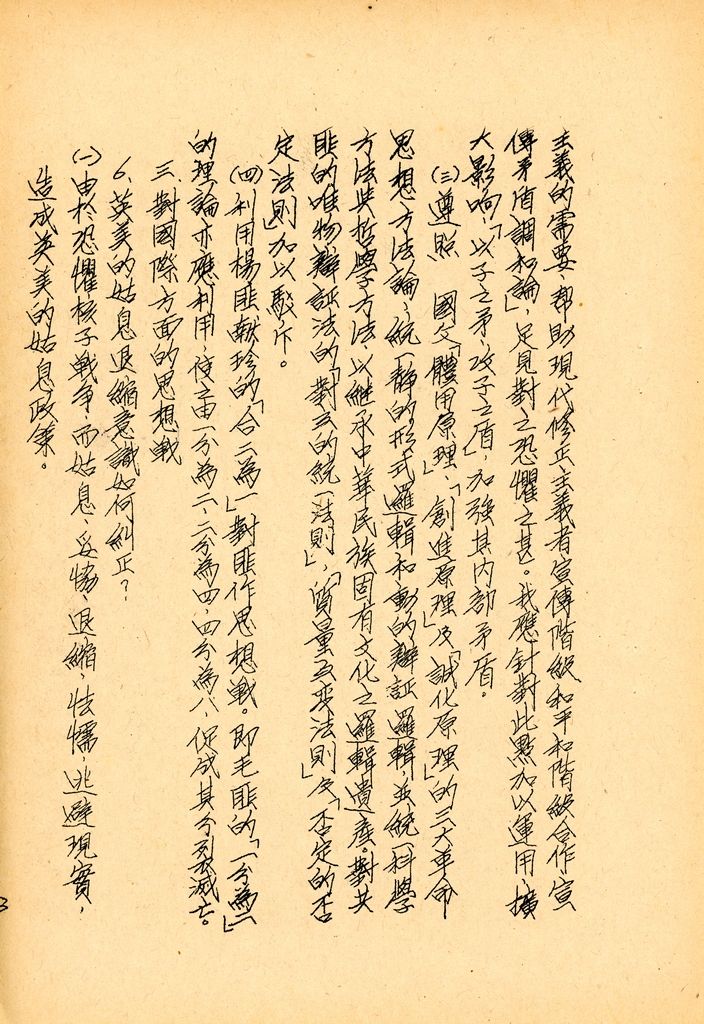 主義的需要、帮助現代修正主義者宣傳階級和平和階級合作宣
傳矛盾調和論」，足見對之恐懼之甚。我應針對此點加以運用，擴
大影响，「以子之矛，攻子之盾」加強其内部矛盾。
㈢遵照　國父「體用原理」、「創進原理」及「誠化原理」的三大革命
思想方法論，統一靜的形式邏輯和動的辯証邏輯，並統一科學
方法與哲學方法以継承中華民族固有文化之邏輯遺産。對共
匪的唯物辯証法的「對立的統一法則」，「質量互変法則」及「否定的否
定法則」加以駁斥。
㈣利用楊匪献珍的「合二為一」對匪作思想戰。即毛匪的「一分為二」
的理論亦應利用，使之由一分為二、二分為四、四分為八，促成其分列灭亡。
三、對國際方面的思想戦
6、英美的姑息退縮意識如何糾正？
㈠由於恐懼核子戦争，而姑息、妥協、退縮、怯懦，逃避現實，
造成英美的姑息政策。